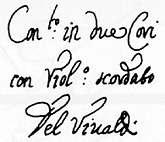 Con.to in due Cori
con Viol.o scordato
Del Viualdi